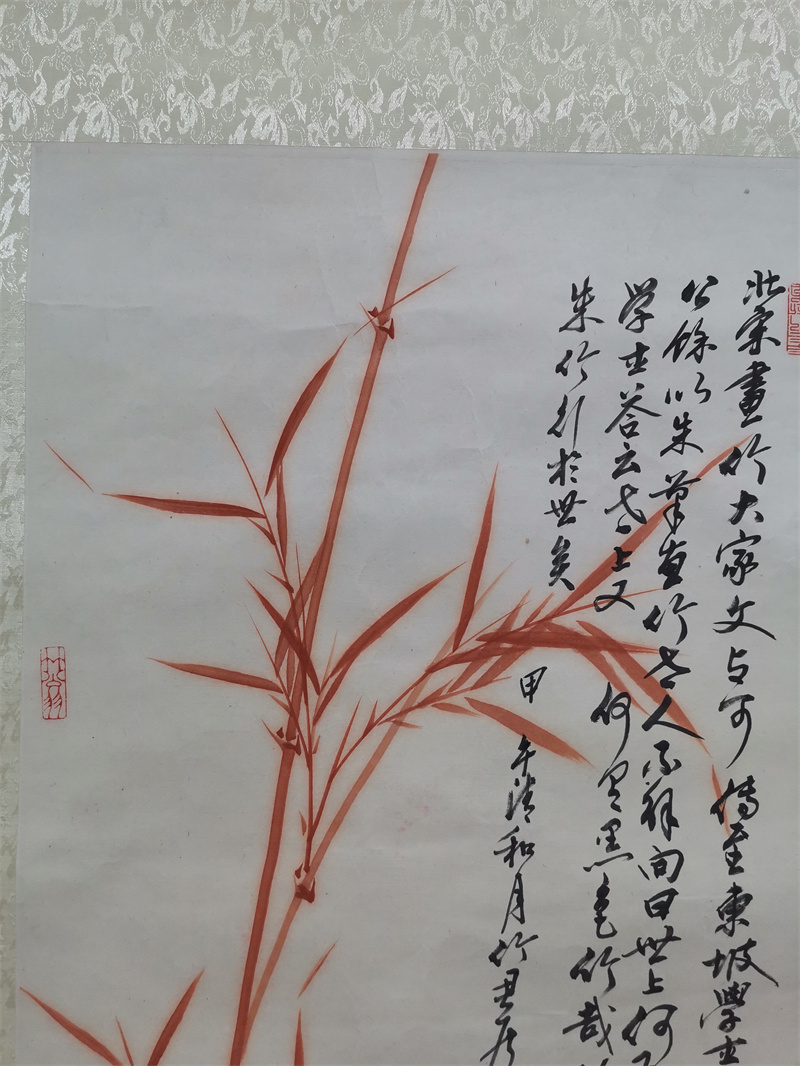 北宋畫竹大家文与可傳至東坡學士
公餘以朱筆畫竹世人不解问曰世上何
学士答云世上又何曾黑色竹哉
朱竹行於世矣
甲午清和月竹君居